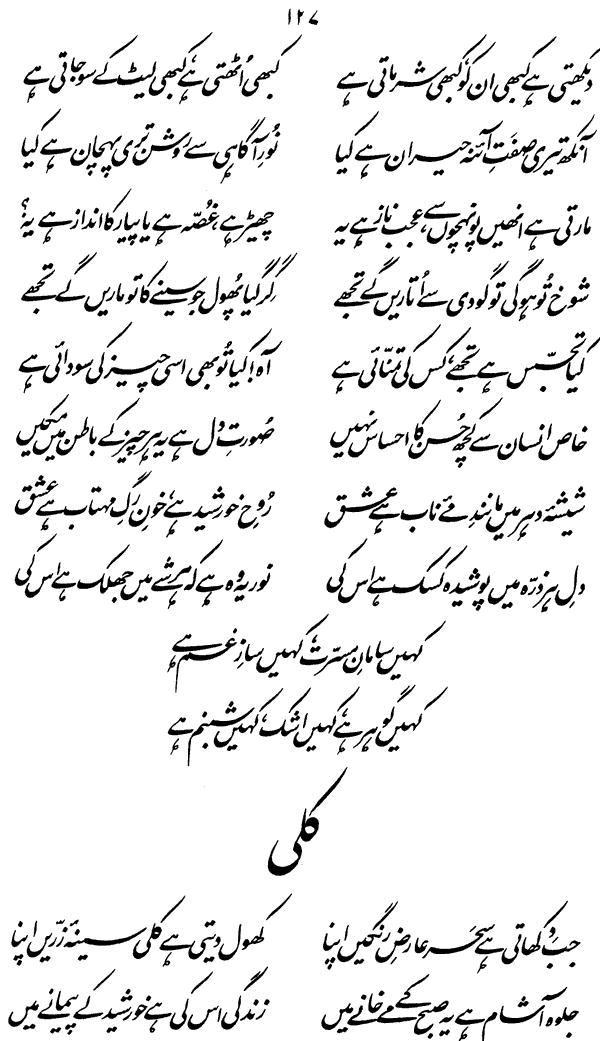 ۱۲۷
دیکھتی ہے کبھی ان کو، کبھی شرماتی ہے کبھی اُٹھتی ہے، کبھی لیٹ کے سو جاتی ہے
آنکھ تیری صفتِ آئنہ حیران ہے کیا نُورِ آگاہی سے روشن تری پہچان ہے کیا
مارتی ہے انھیں پونہچوں سے، عجب ناز ہے یہ چھیڑ ہے، غُصّہ ہے یا پیار کا انداز ہے یہ؟
شوخ تُو ہوگی تو گودی سے اُتاریں گے تجھے گِر گیا پھُول جو سینے کا تو ماریں گے تجھے
کیا تجسّس ہے تجھے، کس کی تمنّائی ہے آہ! کیا تُو بھی اسی چیز کی سودائی ہے
خاص انسان سے کچھ حُسن کا احساس نہیں صُورتِ دل ہے یہ ہر چیز کے باطن میں مکیں
شیشۂ دہر میں مانندِ مۓ ناب ہے عشق رُوحِ خورشید ہے، خونِ رگِ مہتاب ہے عشق
دلِ ہر ذرّہ میں پوشیدہ کسک ہے اس کی نور یہ وہ ہے کہ ہر شے میں جھلک ہے اس کی
کہیں سامانِ مسرّت، کہیں سازِ غم ہے
کہیں گوہر ہے، کہیں اشک، کہیں شبنم ہے
کلی
جب دکھاتی ہے سحر عارضِ رنگیں اپنا کھول دیتی ہے کلی سینۂ زرّیں اپنا
جلوہ آشام ہے یہ صبح کے مے خانے میں زندگی اس کی ہے خورشید کے پیمانے میں